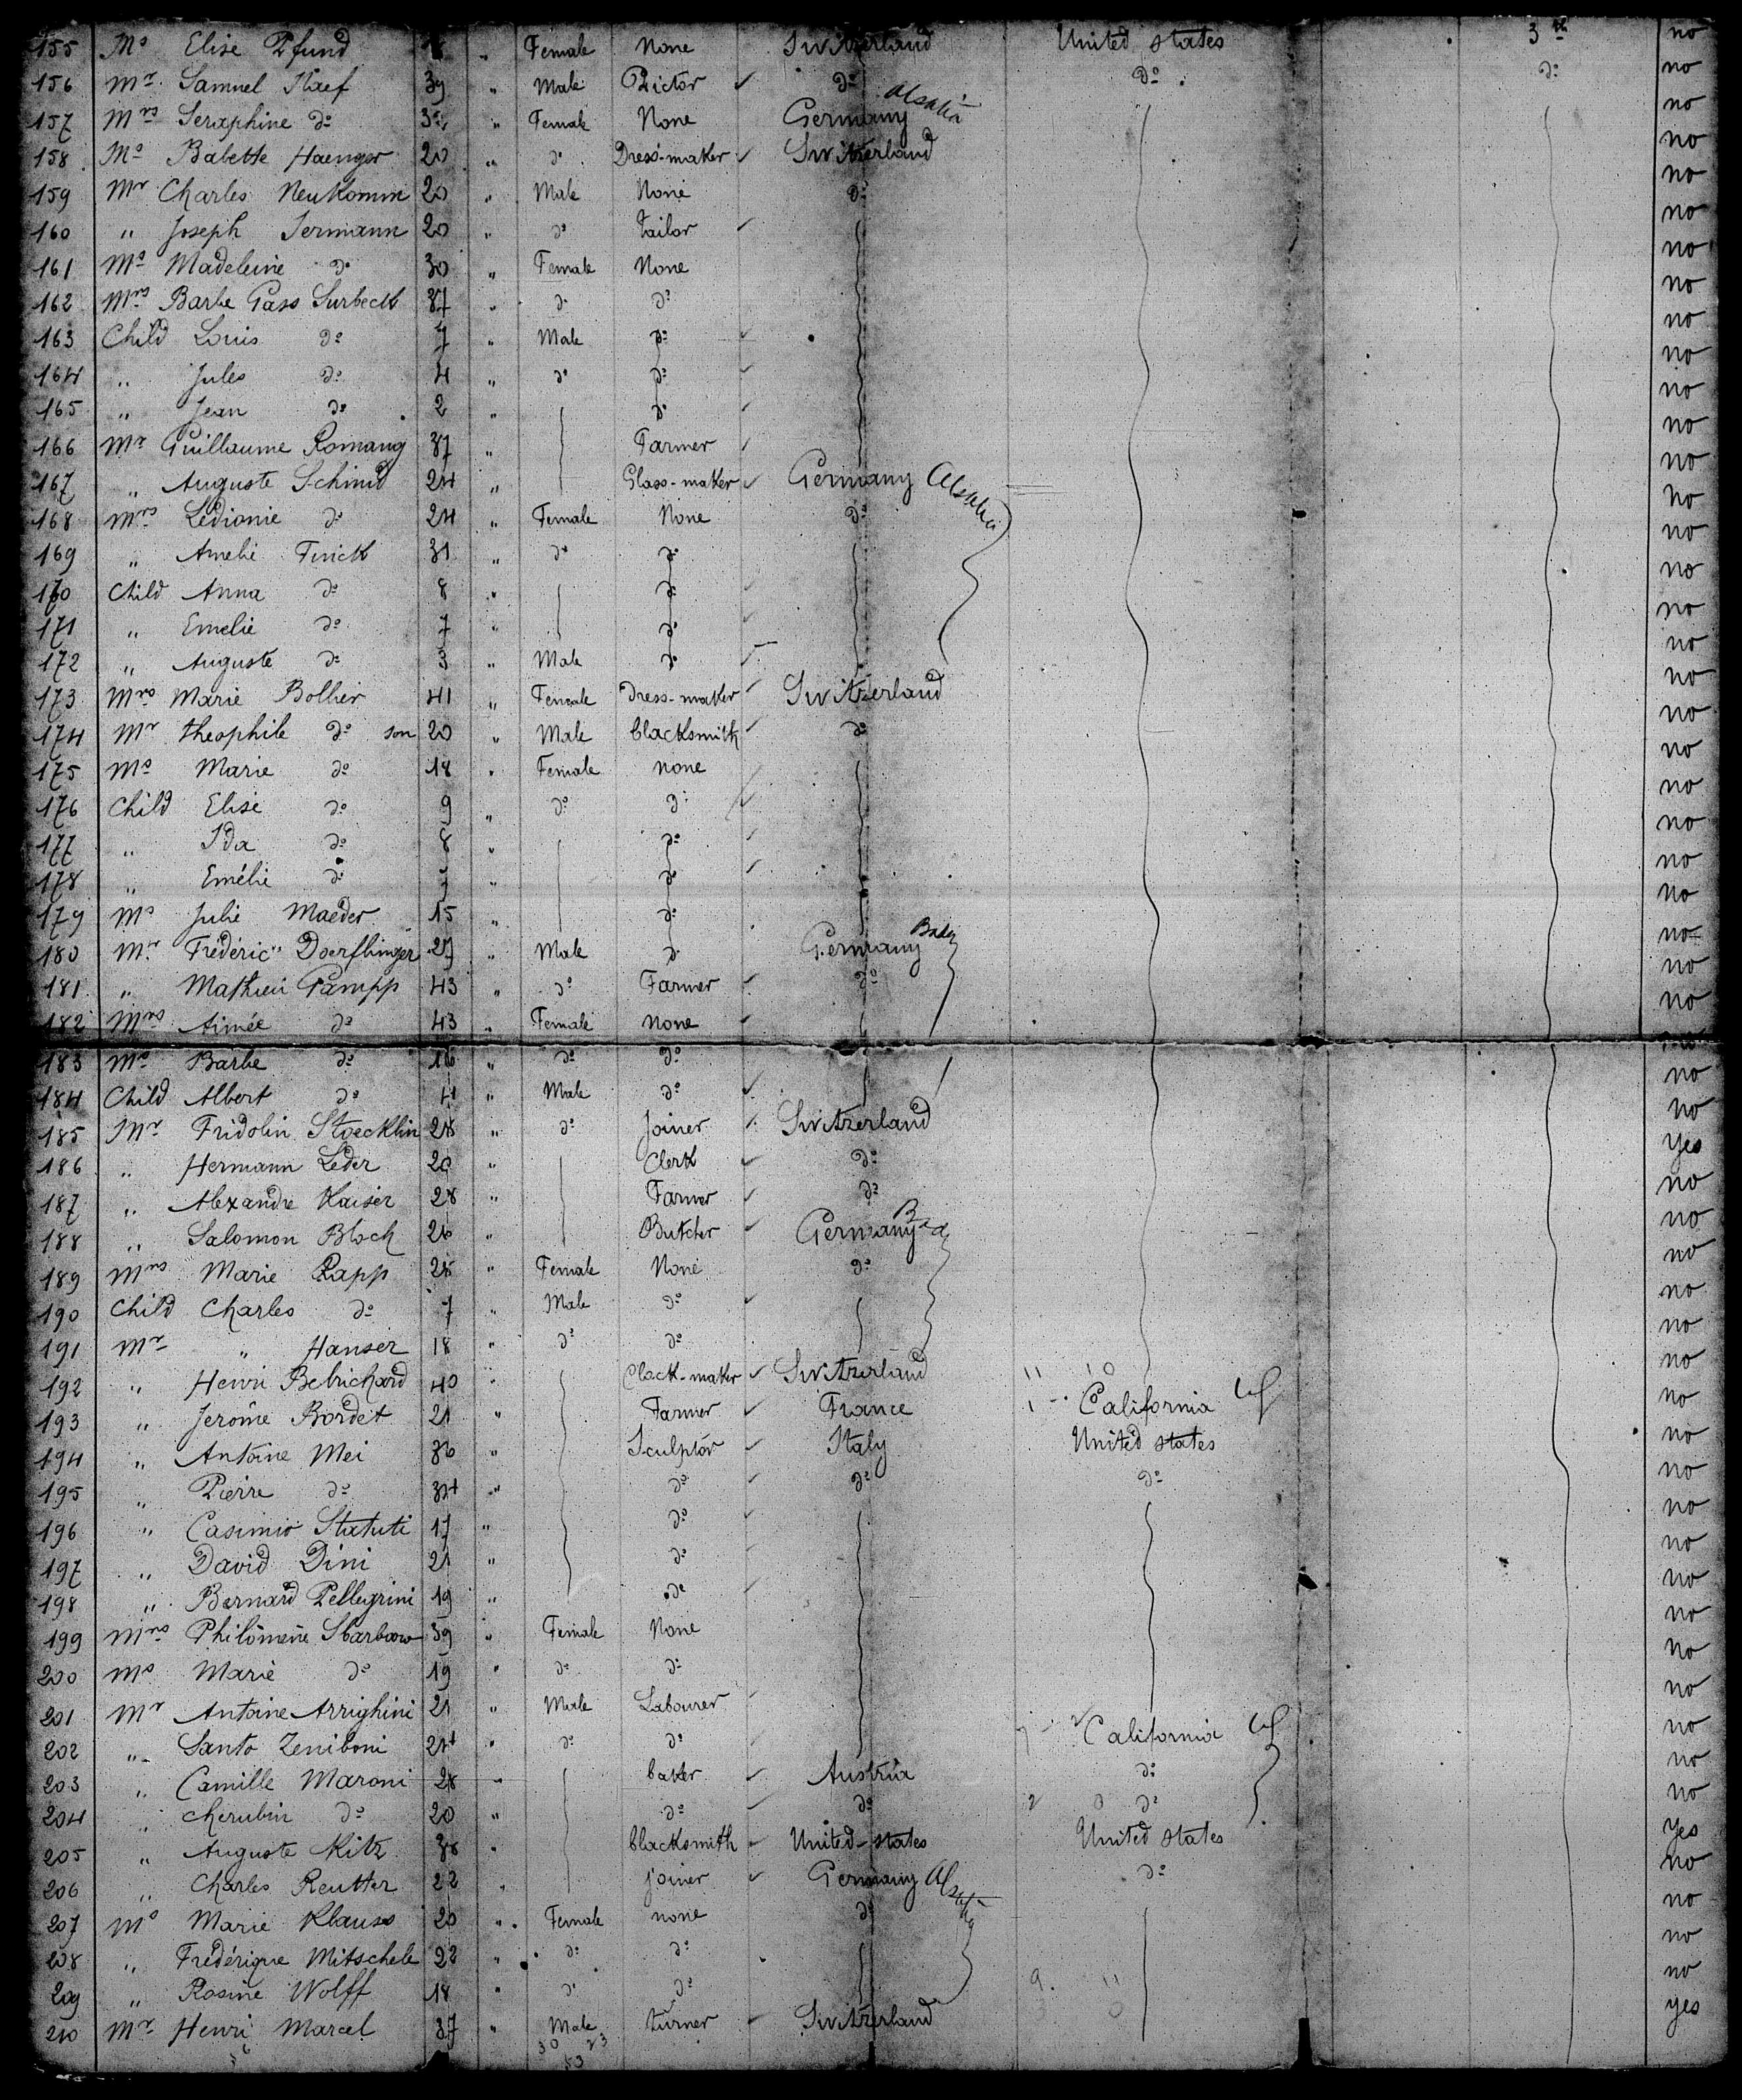 155 Ms Elise Pfund „ Female None Switzerland United states 3rd no
156 Mr Samuel Naef 39 „ Male Pictor ✓ do do do no
157 Mrs Seraphine do „ Female None Germany Alsatia no
158 Ms Babette Haenger 20 „ do Dress-maker ✓ Switzerland no
159 Mr Charles Neukomm 20 „ Male None do no
160 „ Joseph Jermann 20 „ do tailor ✓ no
161 Ms Madeleine do 30 „ Female None no
162 Mrs Barbe Gass Surbeck 37 „ do do no
163 Child Louis do 7 „ Male do ✓ no
164 „ Jules do 4 „ do do ✓ no
165 „ Jean do 2 „ do ✓ no
166 Mr Guillaume Romang 37 „ Farmer ✓ no
167 „ Auguste Schmid 24 „ Glass-maker ✓ Germany Alsatia no
168 Mrs Ledionie do 24 „ Female None do no
169 „ Amelie Finck 31 „ do do no
170 Child Anna do 8 „ do ✓ no
171 „ Emelie do 7 „ do ✓ no
172 „ Auguste do 3 „ Male do ✓ no
173 Mrs Marie Bollier 41 „ Female Dress-maker ✓ Switzerland no
174 Mr theophile do son 20 „ Male blacksmith ✓ do no
175 Ms Marie do 18 „ Female none no
176 Child Elise do 9 „ do do ✓ no
177 „ Ida do 8 „ do ✓ no
178 „ Emélie do „ do ✓ no
179 Ms Julie Maeder 15 „ do no
180 Mr Frédéric Doerflinger 29 „ Male do Germany Baden no
181 „ Mathieu Gampp 43 „ do Farmer ✓ do no
182 Mrs Aimée do 43 „ Female none ✓ no
183 Ms Barbe do 16 „ do do
184 Child Albert do 4 „ Male do ✓ no
185 Mr Fridolin Stoecklin 28 „ do joiner ✓ Switzerland no
186 „ Hermann Leder 20 „ Clerk ✓ do Yes
187 „ Alexandre Kaiser 28 „ Farmer ✓ do no
188 „ Salomon Bloch 26 „ Butcher ✓ Germany Bad no
189 Mrs Marie Rapp 28 „ Female None do no
190 Child Charles do 7 „ Male do ✓ no
191 Mr „ Hanser 18 „ do do no
192 „ Henri Belrichard 40 „ Clock-maker ✓ Switzerland no
193 „ Jerome Bordet 21 „ Farmer ✓ France California no
194 „ Antoine Mei 36 „ Sculptor ✓ Italy United states no
195 „ Pierre do 34 „ do ✓ do do no
196 „ Casimir Statuti 17 „ do ✓ no
197 „ David Dini 21 „ do ✓ no
198 „ Bernard Pellegrini 19 „ do ✓ no
199 Mrs Philomene 39 „ Female None no
200 Ms Marie do 19 „ do do no
201 Mr Antoine Arrighini 21 „ Male Labourer ✓ no
202 „ Santo Zeniboni 24 „ do do ✓ California no
203 „ Camille Maroni 28 „ baker ✓ Austria do no
204 „ Cherubin do 20 „ do ✓ do do no
205 „ Auguste Kitz 38 „ blacksmith ✓ United-states United states yes
206 „ Charles Reutter 22 „ joiner ✓ Germany Alsatia do no
207 Ms Marie Klauss 20 „ Female none do no
208 „ Frédérique Mitschele 22 „ do do no
209 „ Rosine Wolff 18 „ do do no
210 Mr Henri Marcel 37 „ Male turner ✓ Switzerland yes
30 23
53